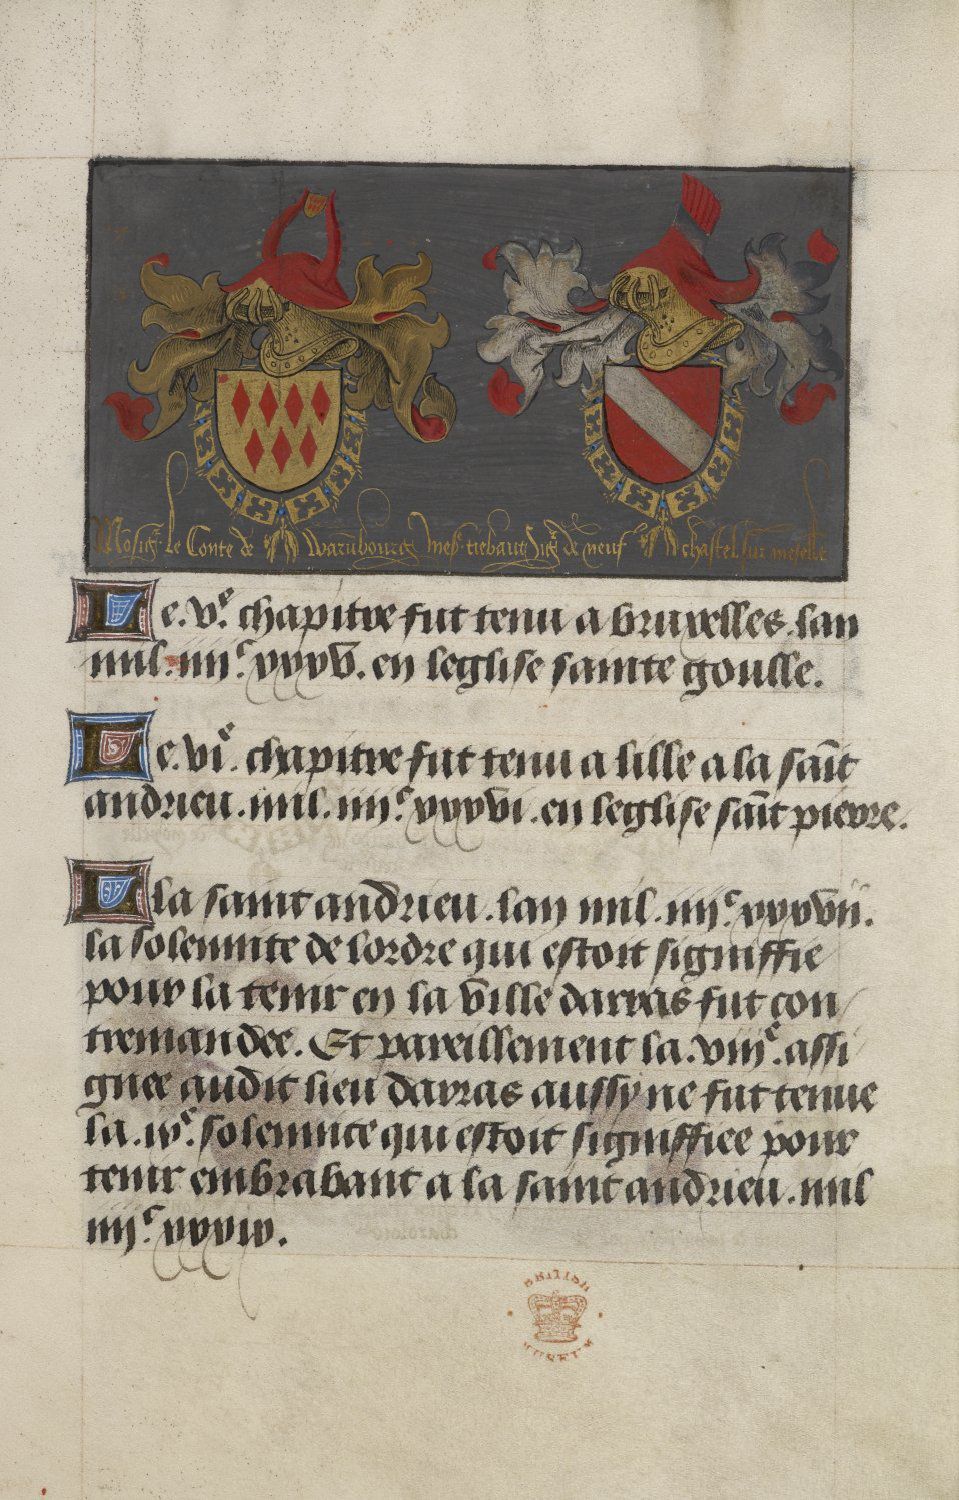 Mōsigr. le Conte de warnēbourcg mess. tiebaut sigr. de neuf chastel sur meselle
Le .ve. chapitre fut tenu a bruxelles. lan
mil. iiiic. xxxv. en leglise sainte goulle.
Le .vie. chapitre fut tenu a lille a la sāīt
andrieu. mil. iiiic. xxxvi. en leglise sāīt pierre.
A la saint andrieu. lan mil. iiiic. xxxvii.
la solennite de lordre qui estoit signiffie
pour la tenir en la ville darras fut con
tremandee. Et pareillement la. viiie. assi
gnee audit lieu darras aussy ne fut tenue
la. ixe. solennite qui estoit signiffiee pour
tenir en brabant a la saint andrieu. mil
iiiic. xxxix.
BRITISH
MUSEUM